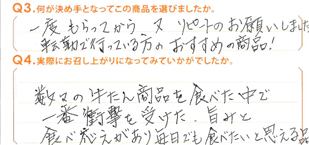 Q3.何が決め手となってこの商品を選びましたか。
一度もらってから、又リピートのお願いしました
転勤で行っている方のおすすめの商品!
Q4.実際にお召し上がりになってみていかがでしたか。
数々の牛たん商品を食べた中で
一番衝撃を受けた。旨みと
食べ応えがあり毎日でも食べたいと思える品